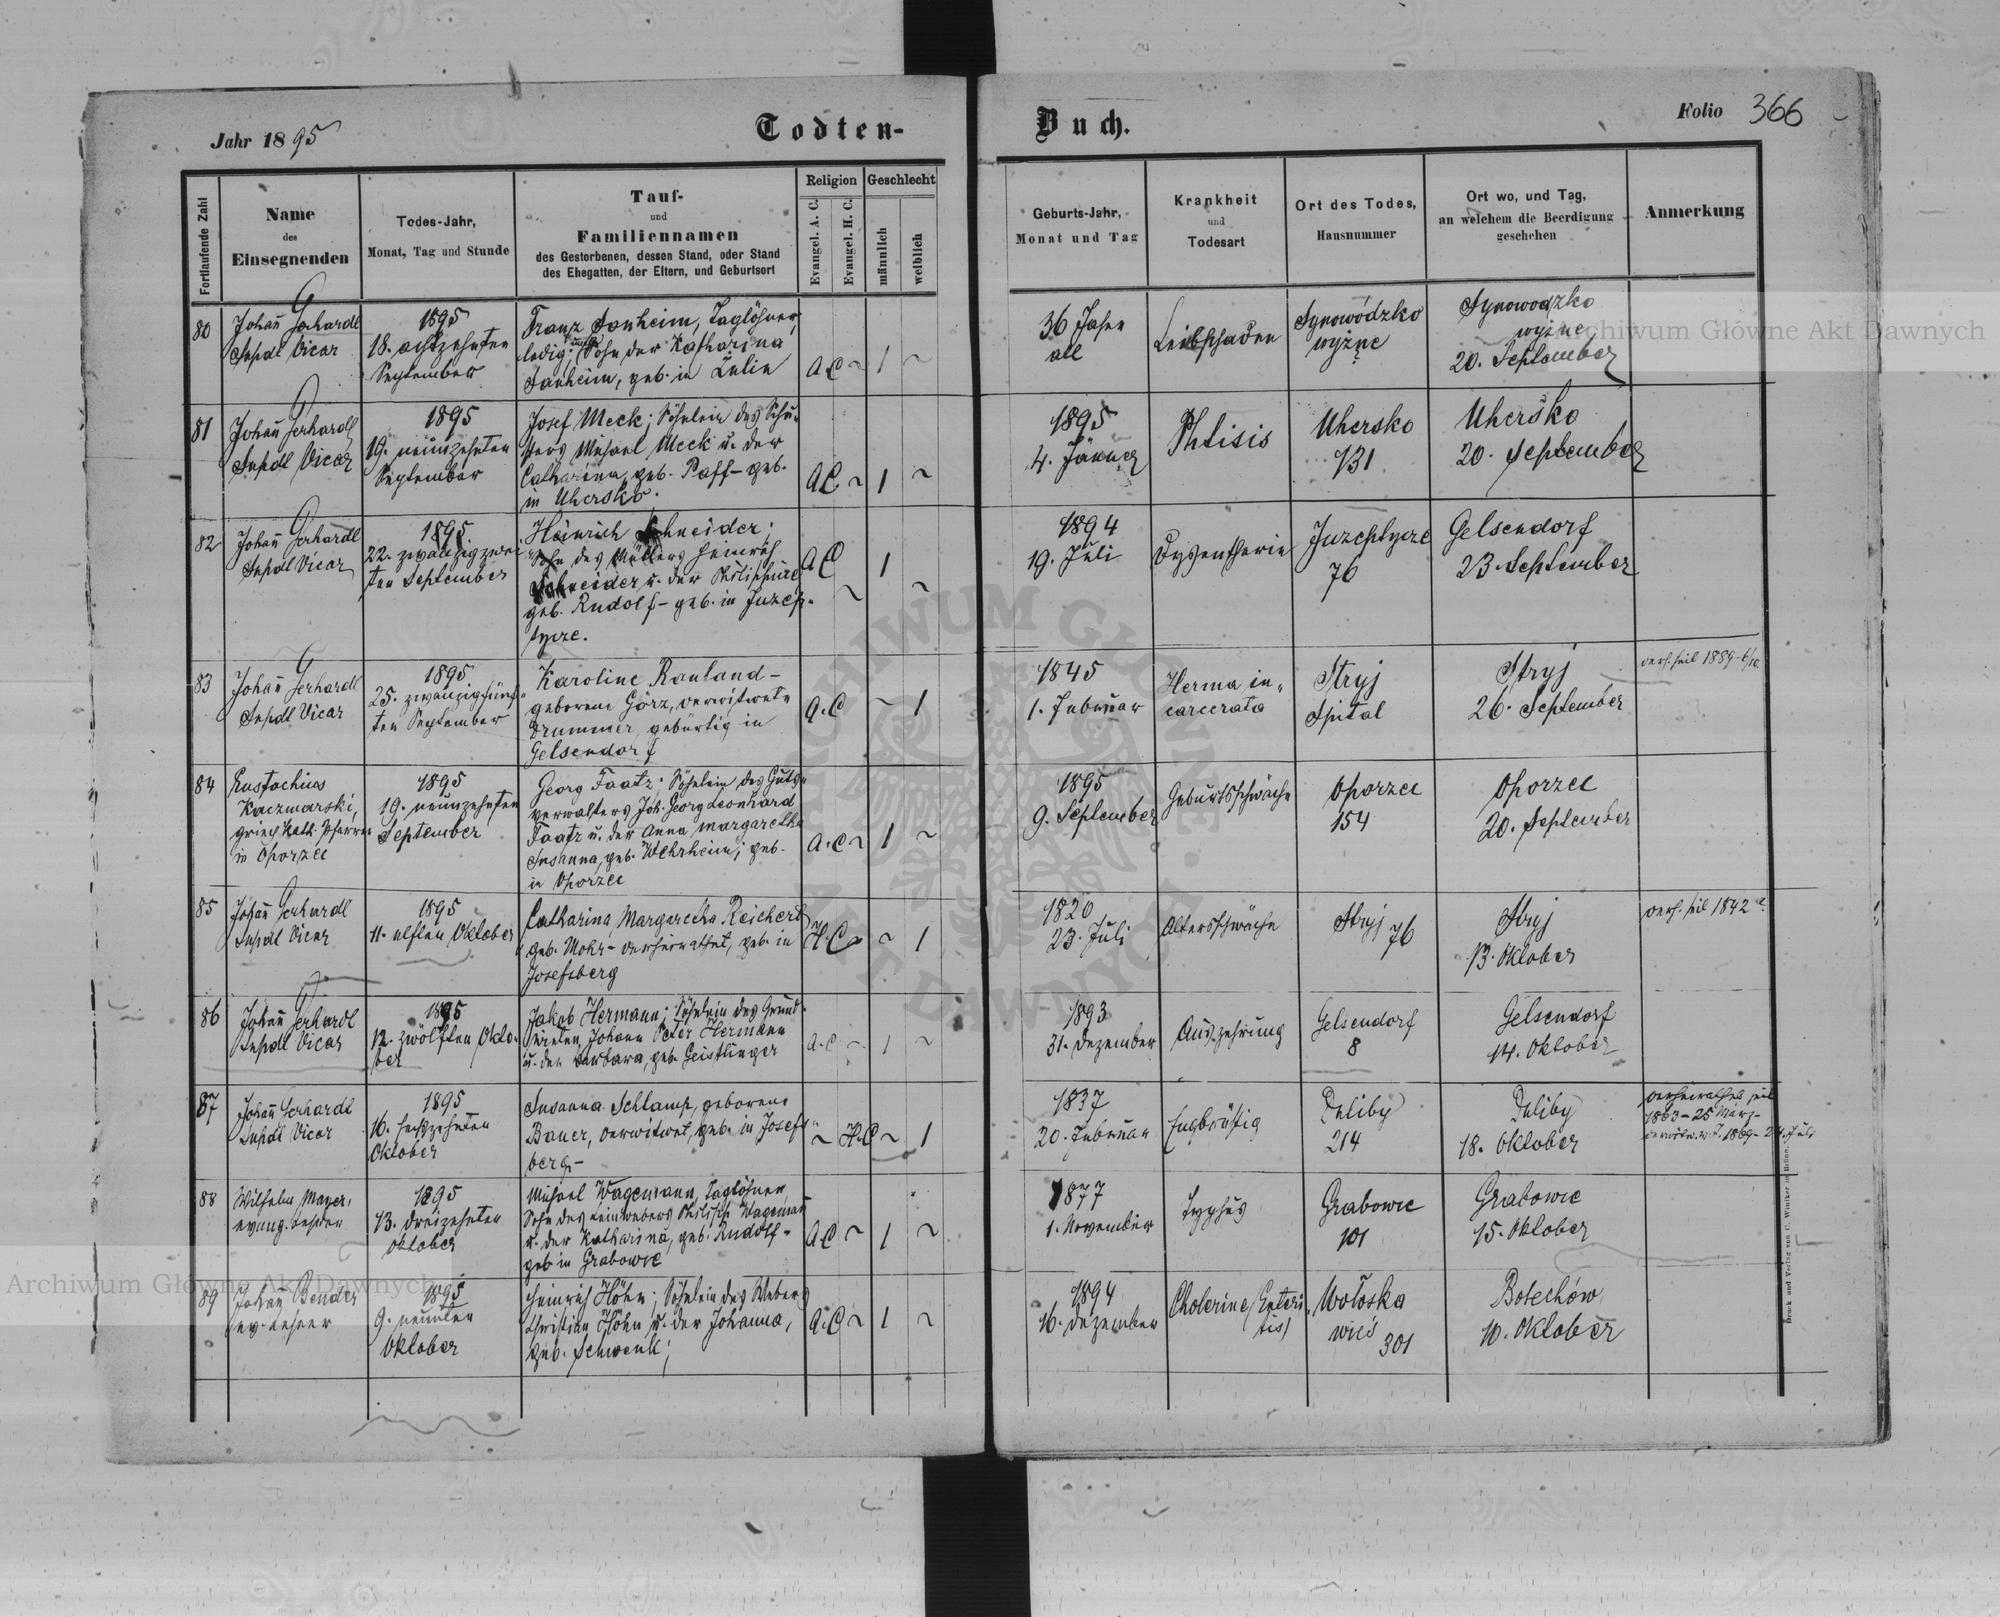 Jahr 1895
Todten-
Buch.
Folio 366
Fortlaufende Zahl
Name
des
Einsegnenden
Todes-Jahr,
Monat, Tag und Stunde
Tauf-
und
Familiennamen
des Gestorbenen, dessen Stand, oder Stand
des Ehegatten, der Eltern, und Geburtsort
Religion
Evangel. A. C.
Evangel. H. C.
Geschlecht
männlich
weiblich
Geburts-Jahr,
Monat und Tag
Krankheit
und
Todesart
Ort des Todes,
Hausnummer
Ort wo, und Tag,
an welchem die Beerdigung
geschehen
Anmerkung
80
Johañ Gerhardt
Supdl Vicar
1895
18. achtzehnten
September
Franz Tanheim, Taglöhner,
ledig; Sohn der Katharina
Tanheim, geb. in
A.C ~ 1 ~
36 Jahre
alt
Leibschaden
Synowódzko
wyżne
Synowodzko
wyżne
20. September
81
Johañ Gerhardt
Supdl Vicar
1895
19. neunzehnten
September
Josef Meck; Söhnlein des Schu-
sters Michael Meck u. der
Catharina, geb. Paff - geb.
in Uhersko.
A.C ~ 1 ~
1895
4. Jänner
Phtisis
Uhersko
131
Uhersko
20. September
82
Johañ Gerhardt
Supdl Vicar
1895
22. zwanzigzwei
ten September
Heinrich Schneider;
Sohn des Müllers Heinrich
Schneider u. der Philippine
geb. Rudolf - geb. in Juzep-
tycze.
A.C ~ 1 ~
1894
19. Juli
Dysentherie
Juzeptycze
76
Gelsendorf
23. September
83
Johañ Gerhardt
Supdl Vicar
1895
25. zwanzigfünf-
ten September
Karoline Rauland -
geborene Görz, verwitwete
Drummer, gebürtig in
Gelsendorf
A.C ~ 1
1845
1. Februar
Herma in-
carcerata
Stryj
Spital
Stryj
26. September
verh. seit 1889 - 6/10.
84
Eustachius
Kaczmarski,
griech kath. Pfarrer
in Oporzec
1895
19. neunzehnten
September
Georg Faatz; Söhnlein des Guts-
verwalters Joh. Georg Leonhard
Faatz u. der Anna Margaretha
Susanna, geb. Wehrheim; geb.
in Oporzec
A.C ~ 1 ~
1895
9. September
Geburtsschwäche
Oporzec
154
Oporzec
20. September
85
Johañ Gerhardt
Supdl Vicar
1895
11. elften Oktober
Catharina Margaretha Reichert
geb. Mohr - verheirathet, geb. in
Josefsberg
H.C ~ ~ 1
1820
23. Juli
Altersschwäche
Stryj 76
Stryj
13. Oktober
verh. seit 1842
86
Johañ Gerhardt
Supdl Vicar
1895
12. zwölften Okto-
ber
Jakob Hermann; Söhnlein des Grund-
wirten Johann Peter Hermann
u. der Barbara, geb. Geistlinger
A.C ~ 1 ~
1893
31. Dezember
Auszehrung
Gelsendorf
8
Gelsendorf
14. Oktober
87
Johañ Gerhardt
Supdl Vicar
1895
16. sechzehnten
Oktober
Susanna Schlamp, geborene
Bauer, verwitwet, geb. in Josefs-
berg -
~ H.C ~ 1
1837
20. Februar
Engbrüstig
Duliby
214
Duliby
18. Oktober
verheirathet seit
1863 - 25 März -
88
Wilhelm Mayer,
evang. Lehrer
1895
13. dreizehnten
Oktober
Michael Wagemann, Taglöhner,
Sohn des Leinwebers Philipp Wagemañ
u. der Katharina, geb. Rudolf -
geb in Grabowce
A.C ~ 1 ~
1877
1. November
Typhus
Grabowce
101
Grabowce
15. Oktober
89
Johañ Bender
ev. Lehrer
1895
9. neunten
Oktober
Heinrich Höhn; Söhnlein des Webers
Christian Höhn u. der Johanna,
geb. Schwenk;
A.C ~ 1 ~
1894
16. Dezember
Cholerine (Enteri
tis)
Wołoska
wieś
301
Bolechów
10. Oktober
Druck und Verlag von C. Winiker in Brünn.
Archiwum Główne Akt Dawnych
Archiwum Główne Akt Dawnych
ARCHIWUM GŁÓWNE · AKT DAWNYCH ·